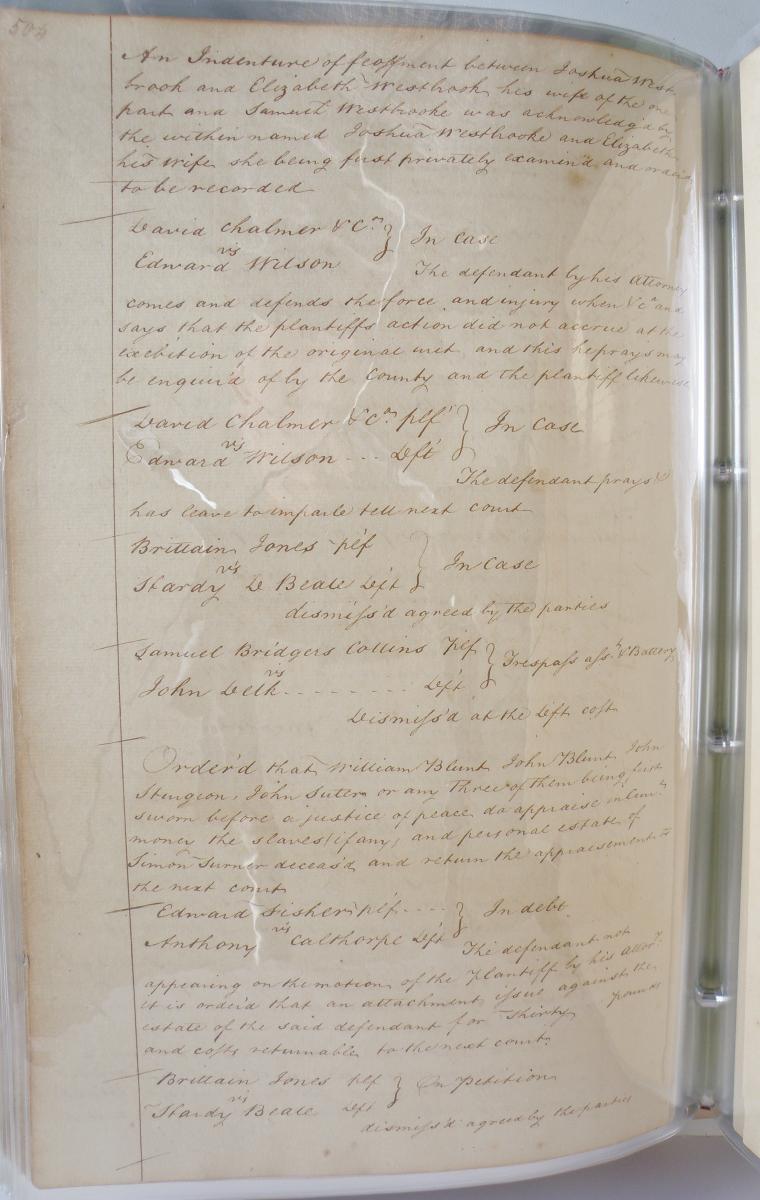 504
An Indenture of feoffment between Joshua West
brook and Elizabeth Westbrook his wife of the one
part and Samuel Westbrooke was acknowledg'd by
the within named Joshua Westbrooke and Elizabeth
his Wife she being first privately examin'd and order'd
to be recorded
David Chalmer & Co
vs
In Case
Edward Wilson
The defendant by his Attorney
comes and defends the force and injury when &ca and
says that the plantiffs action did not accrue at the
exebition of the original writ and this he prays may
be enquir'd of by the County and the plantiff likewise
David Chalmer & Co plf
vs
In Case
Edward Wilson --- Deft
The defendant prays &
has leave to imparle tell next court
Brittain Jones plf
vs
In Case
Hardy D Beale Deft
dismiss'd agreed by the parties
Samuel Bridgers Collins plf
vs
Trespass asst & Battery
John Delk -------- Deft
Dismiss'd at the Deft cost
Order'd that William Blunt John Blunt John
Sturgeon, John Suter or any Three of them being first
sworn before a justice of peace do appraise in Curt
money the slaves (if any) and personal estate of
Simon Turner deceas'd and return the appraisement to
the next court
Edward Fisher plf ----
vs
In debt
Anthony Calthorpe Deft
The defendant not
appearing on the motion of the plantiff by his Attor
it is order'd that an attachment issue against the
estate of the said defendant for Thirty pounds
and costs returnable to the next court
Brittain Jones plf
vs
On Petition
Hardy Beale Deft
dismiss'd agreed by the parties